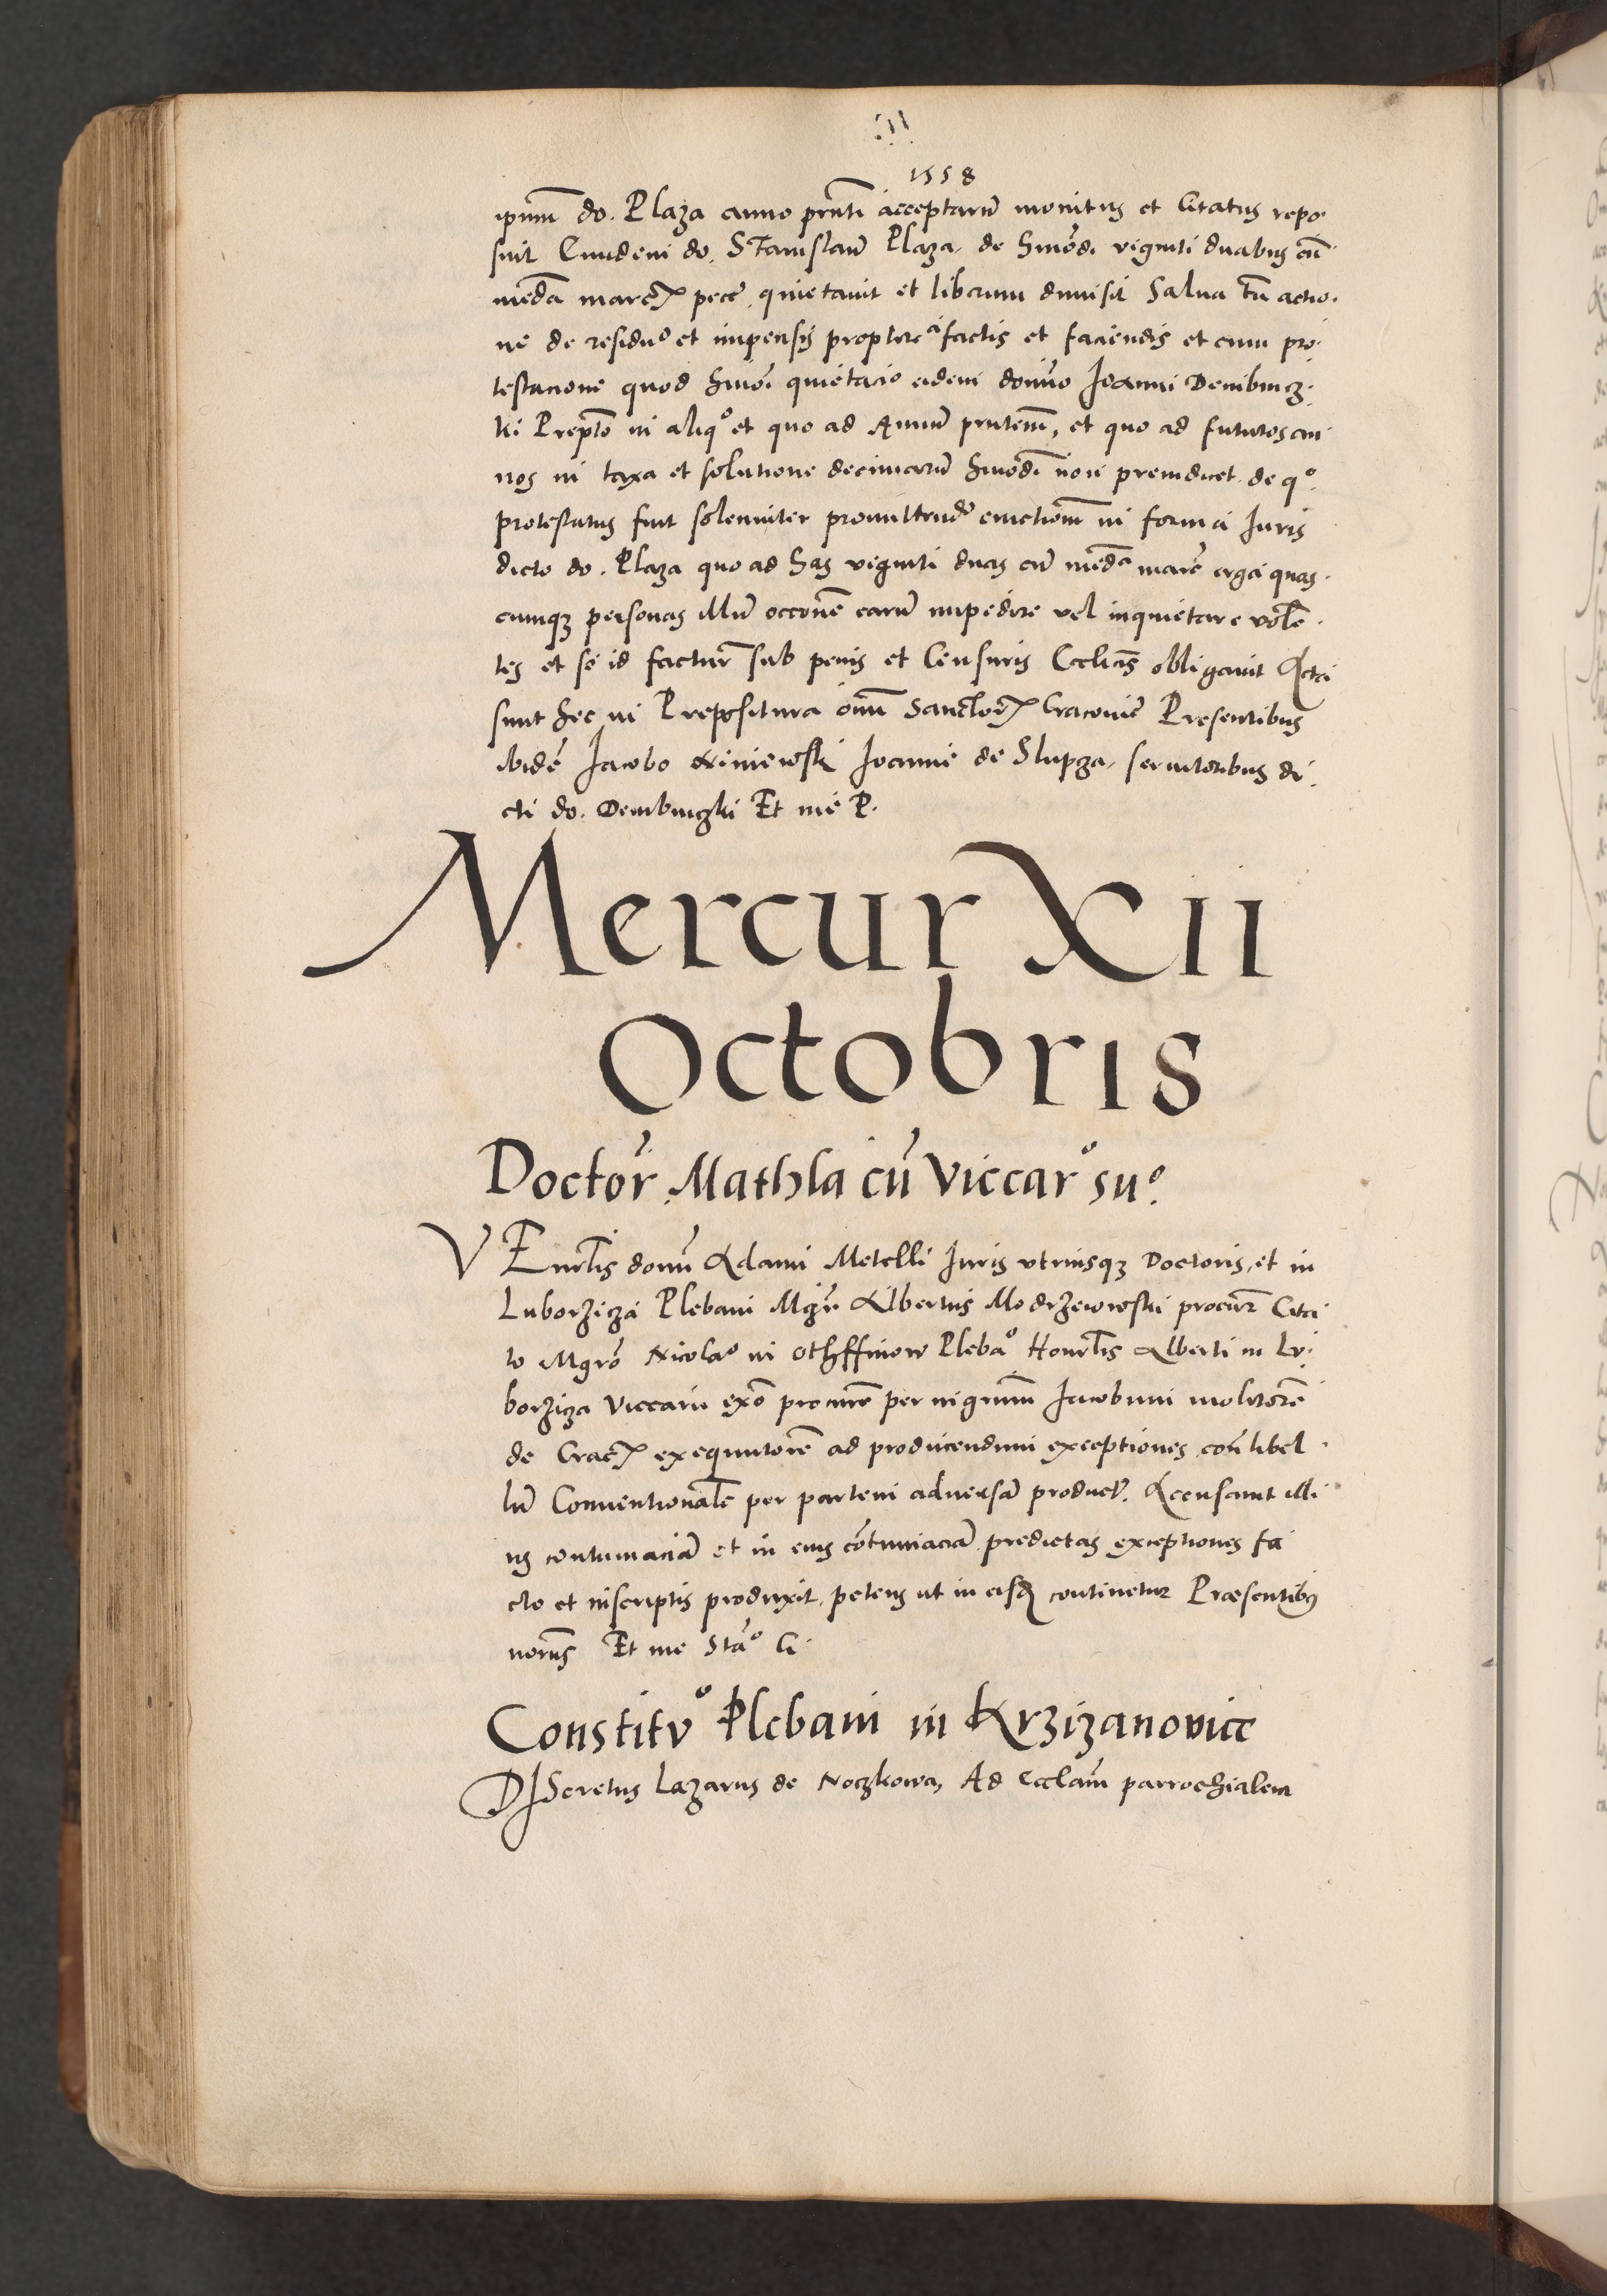 1558
ipsum do. Plaza anno pñti acceptarũ monitus et Citatus repo.
suit Eundem do. Stanislaũ Plaza, de hmõdi viginti duabus cũ
media marcꝝ pecẽ quietauit et liberum dimisit Salua tñ actio.
ne de residuo et impensis propterea factis et faciendis et cum pro.
testacione quod hmõi quietacio eidem domino Joanni Dembincz.
ki Prepto in aliqo et quo ad Annũ pñtem, et quo ad futuros an
nos in taxa et solutione decimarũ hmõdi non preiudicet de qo.
protestatus fuit solemniter promittendo euictionem in forma Juris
dicto do. Plaza quo ad has viginti duas cũ media marc̃ erga quas.
cumqꝫ personas illũ occõne earũ impedire vel inquietare volẽ.
tes et se id facturũ sub penis et Censuris Ecclicis obligauit Acta
sunt hec in Prepositura om̃ Sanctorꝝ Cracouie Presentibus
ibidẽ Jacobo Niniewski Joanne de Slupza, seruitoribus di.
cti do. Dembinczki Et me P.
Mercur XII
Octobris
Doctor Mathla cũ Viccaro suo.
VEnerlis domñ Adami Metelli Juris vtriusqꝫ Doctoris, et in
Luborzicza Plebani Mgr̃ Albertus Modrzewowski procur̃ Cita
to Mgrõ Nicolao in Othffinow Plebão Honorlis Alberti in Lv.
borziza Viccarii exõ procurẽ per nigrum Jacobum molitorẽ
de Cracꝝ exequutorẽ ad producendum exceptiones con libel.
lũ Conuentionalẽ per partem aduersã product̃. Accusauit illi
us contumaciã et in eius cõtumaciã predictas exceptiones fa
cto et inscriptis produxit, petens ut in eisdẽ continetur Præsentibus
norũs Et me Stão G.
Constitvo Plebani in Krzizanovice
DIScretus Lazarus de Noczkowa, Ad Ecclãm parrochialem